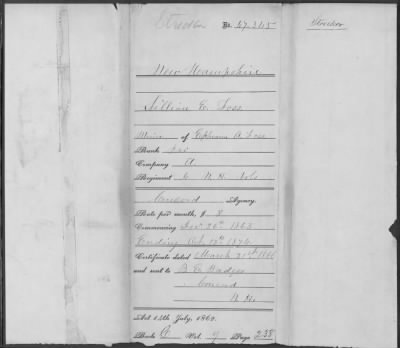 Streeter
No. 67.345
Streeter
New Hampshire
Lillian E. Foss
Minor of Ephraim A. Foss
Rank
Company A
Regiment 6 N. H. Vols
Concord Agency.
Rate per month, $ 8
Commencing 26th 1863
Ending Oct. 1876.
Certificate dated March 21st 1866
and sent to B. E. Badger
Concord
N. H.
Act 14th July, 1862.
Book A Vol. Page 238